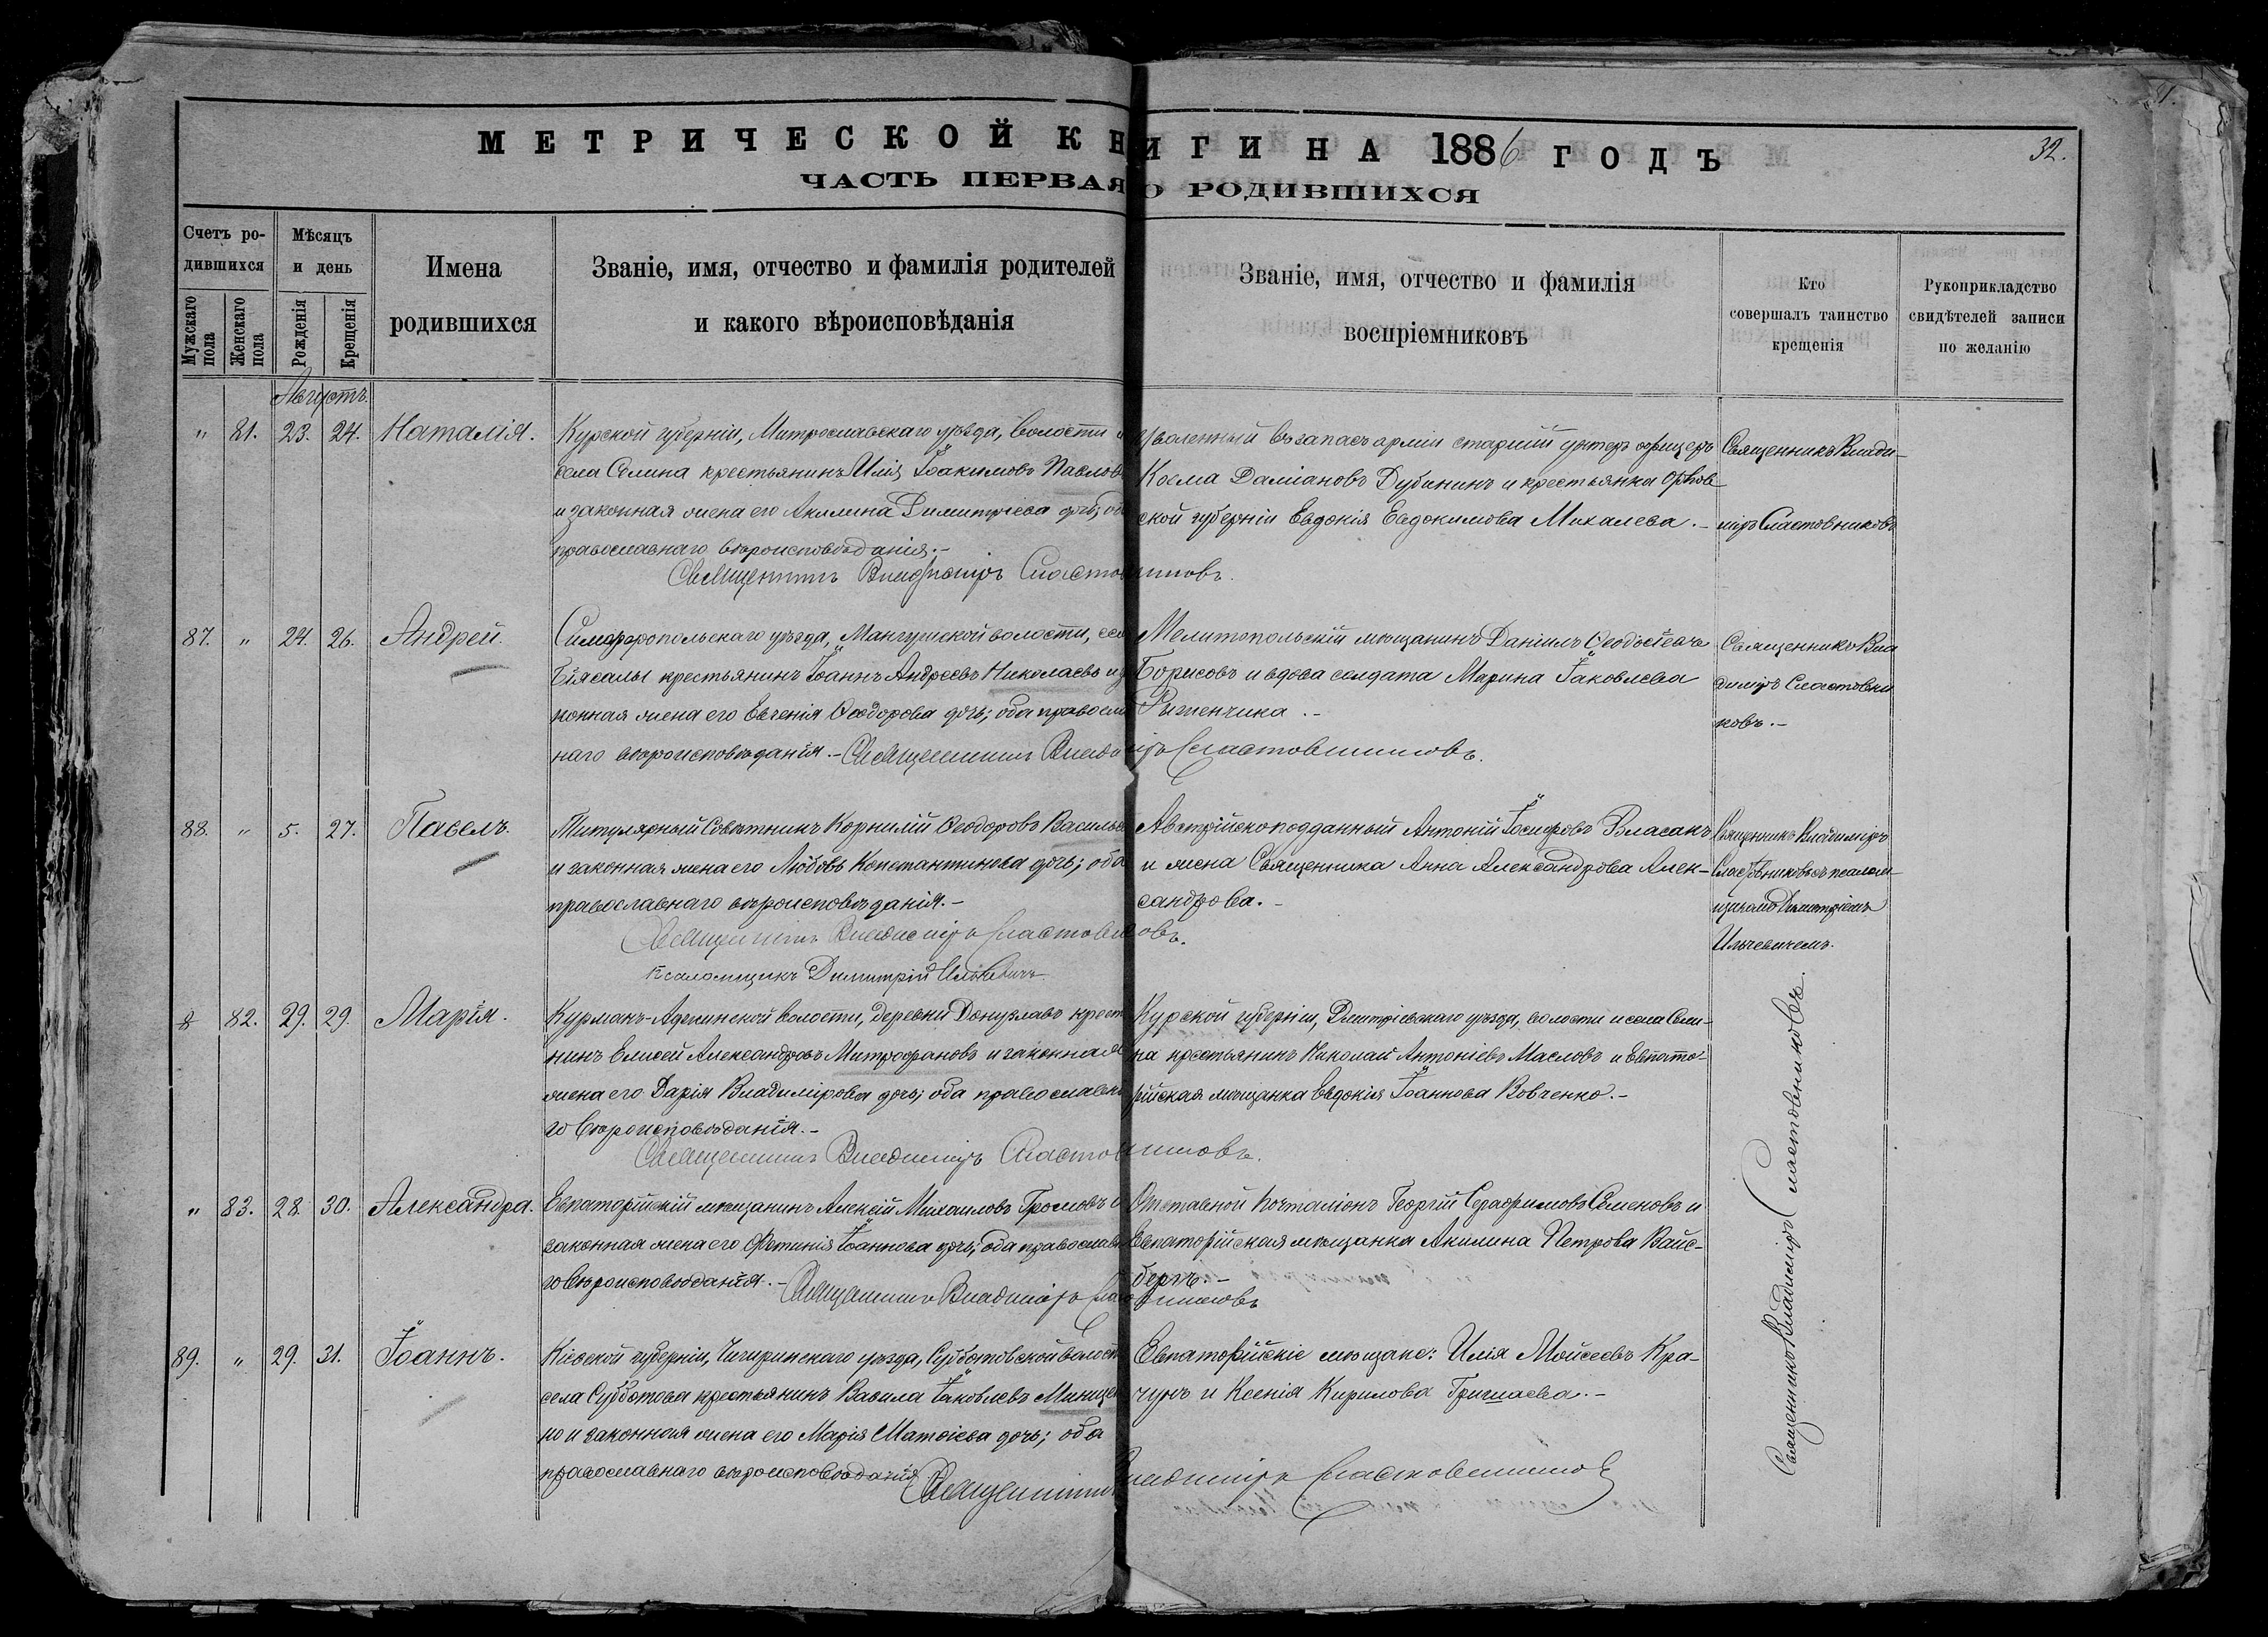 МЕТРИЧЕСКОЙ КНИГИ НА 1886 ГОДЪ
32.
ЧАСТЬ ПЕРВАЯ О РОДИВШИХСЯ
Счетъ ро-
дившихся
Мужскаго пола
Женскаго пола
Мѣсяцъ
и день
Рожденія
Крещенія
Имена
родившихся
Званіе, имя, отчество и фамилія родителей
и какого вѣроисповѣданія
Званіе, имя, отчество и фамилія
воспріемниковъ
Кто
совершалъ таинство
крещенія
Рукоприкладство
свидѣтелей записи
по желанію
Августъ.
" 81. 23. 24. Наталія.
Курской губерніи, Митрославскаго уѣзда, волости и
села Селина крестьянинъ Илія Іоакимовъ Павлов
и законная жена его Акилина Димитріева дочь; оба
православнаго вѣроисповѣданія.-
Священникъ Владиміръ Сластовниковъ.
Уволенный въ запасъ арміи старшій унтеръ офицеръ
Косма Даміановъ Дубининъ и крестьянка Орлов-
ской губерніи Евдокія Евдокимова Михалева.-
Священникъ Влади-
міръ Сластовниковъ
87. " 24. 26. Андрей.
Симферопольскаго уѣзда, Мангушской волости, сел
Біясалы крестьянинъ Іоаннъ Андреевъ Николаевъ и за
конная жена его Евгенія Ѳеодорова дочь; оба православ
наго вѣроисповѣданія.- Священникъ Владиміръ Сластовниковъ.
Мелитопольскій мѣщанинъ Даніилъ Ѳеодосіевъ
Борисовъ и вдова солдата Марина Іаковлева
Рыженчика.-
Священникъ Вла
диміръ Сластовни
ковъ.-
88. " 5. 27. Павелъ.
Титулярный Совѣтникъ Корнилій Ѳеодоровъ Василье
и законная жена его Любовь Константинова дочь; оба
православнаго вѣроисповѣданія.-
Священникъ Владиміръ Сластовниковъ.
Псаломщикъ Димитрій Илькевичъ
Австрійскоподданный Антоній Іосифовъ Власакъ
и жена Священника Анна Александрова Алек-
сандрова.-
Священникъ Владиміръ
Сластовниковъ съ псалом-
щикомъ Димитріемъ
Илькевичемъ.
82. 29. 29. Марія.
Курманъ-Аджинской волости, деревни Донузлавъ крест
нинъ Елисей Александровъ Митрофановъ и законная
жена его Дарія Владимірова дочь; оба православна
го вѣроисповѣданія.-
Священникъ Владиміръ Сластовниковъ.
Курской губерніи, Дмитріевскаго уѣзда, волости и села Сели-
на крестьянинъ Николай Антоніевъ Масловъ и Евпато-
рійская мѣщанка Евдокія Іоаннова Вовченко.-
" 83. 28. 30. Александра.
Евпаторійскій мѣщанинъ Алексій Михаиловъ Громовъ и
законная жена его Фотинія Іоаннова дочь; оба православна
го вѣроисповѣданія.- Священникъ Владиміръ Сластовниковъ
Отставной Почталіонъ Георгій Серафимовъ Семеновъ и
Евпаторійская мѣщанка Акилина Петрова Вайс-
бергъ.-
89. " 29. 31. Іоаннъ.
Кіевской губерніи, Чигиринскаго уѣзда, Субботовской волост
села Субботова крестьянинъ Вавила Іаковлевъ Минщен
ко и законная жена его Марія Матѳіева дочь; оба
православнаго вѣроисповѣданія
Священникъ Владиміръ Сластовниковъ
Евпаторійскіе мѣщане: Илія Мойсеевъ Кра-
чунъ и Ксенія Кирилова Григшаева.-
Священникъ Владиміръ Сластовниковъ.